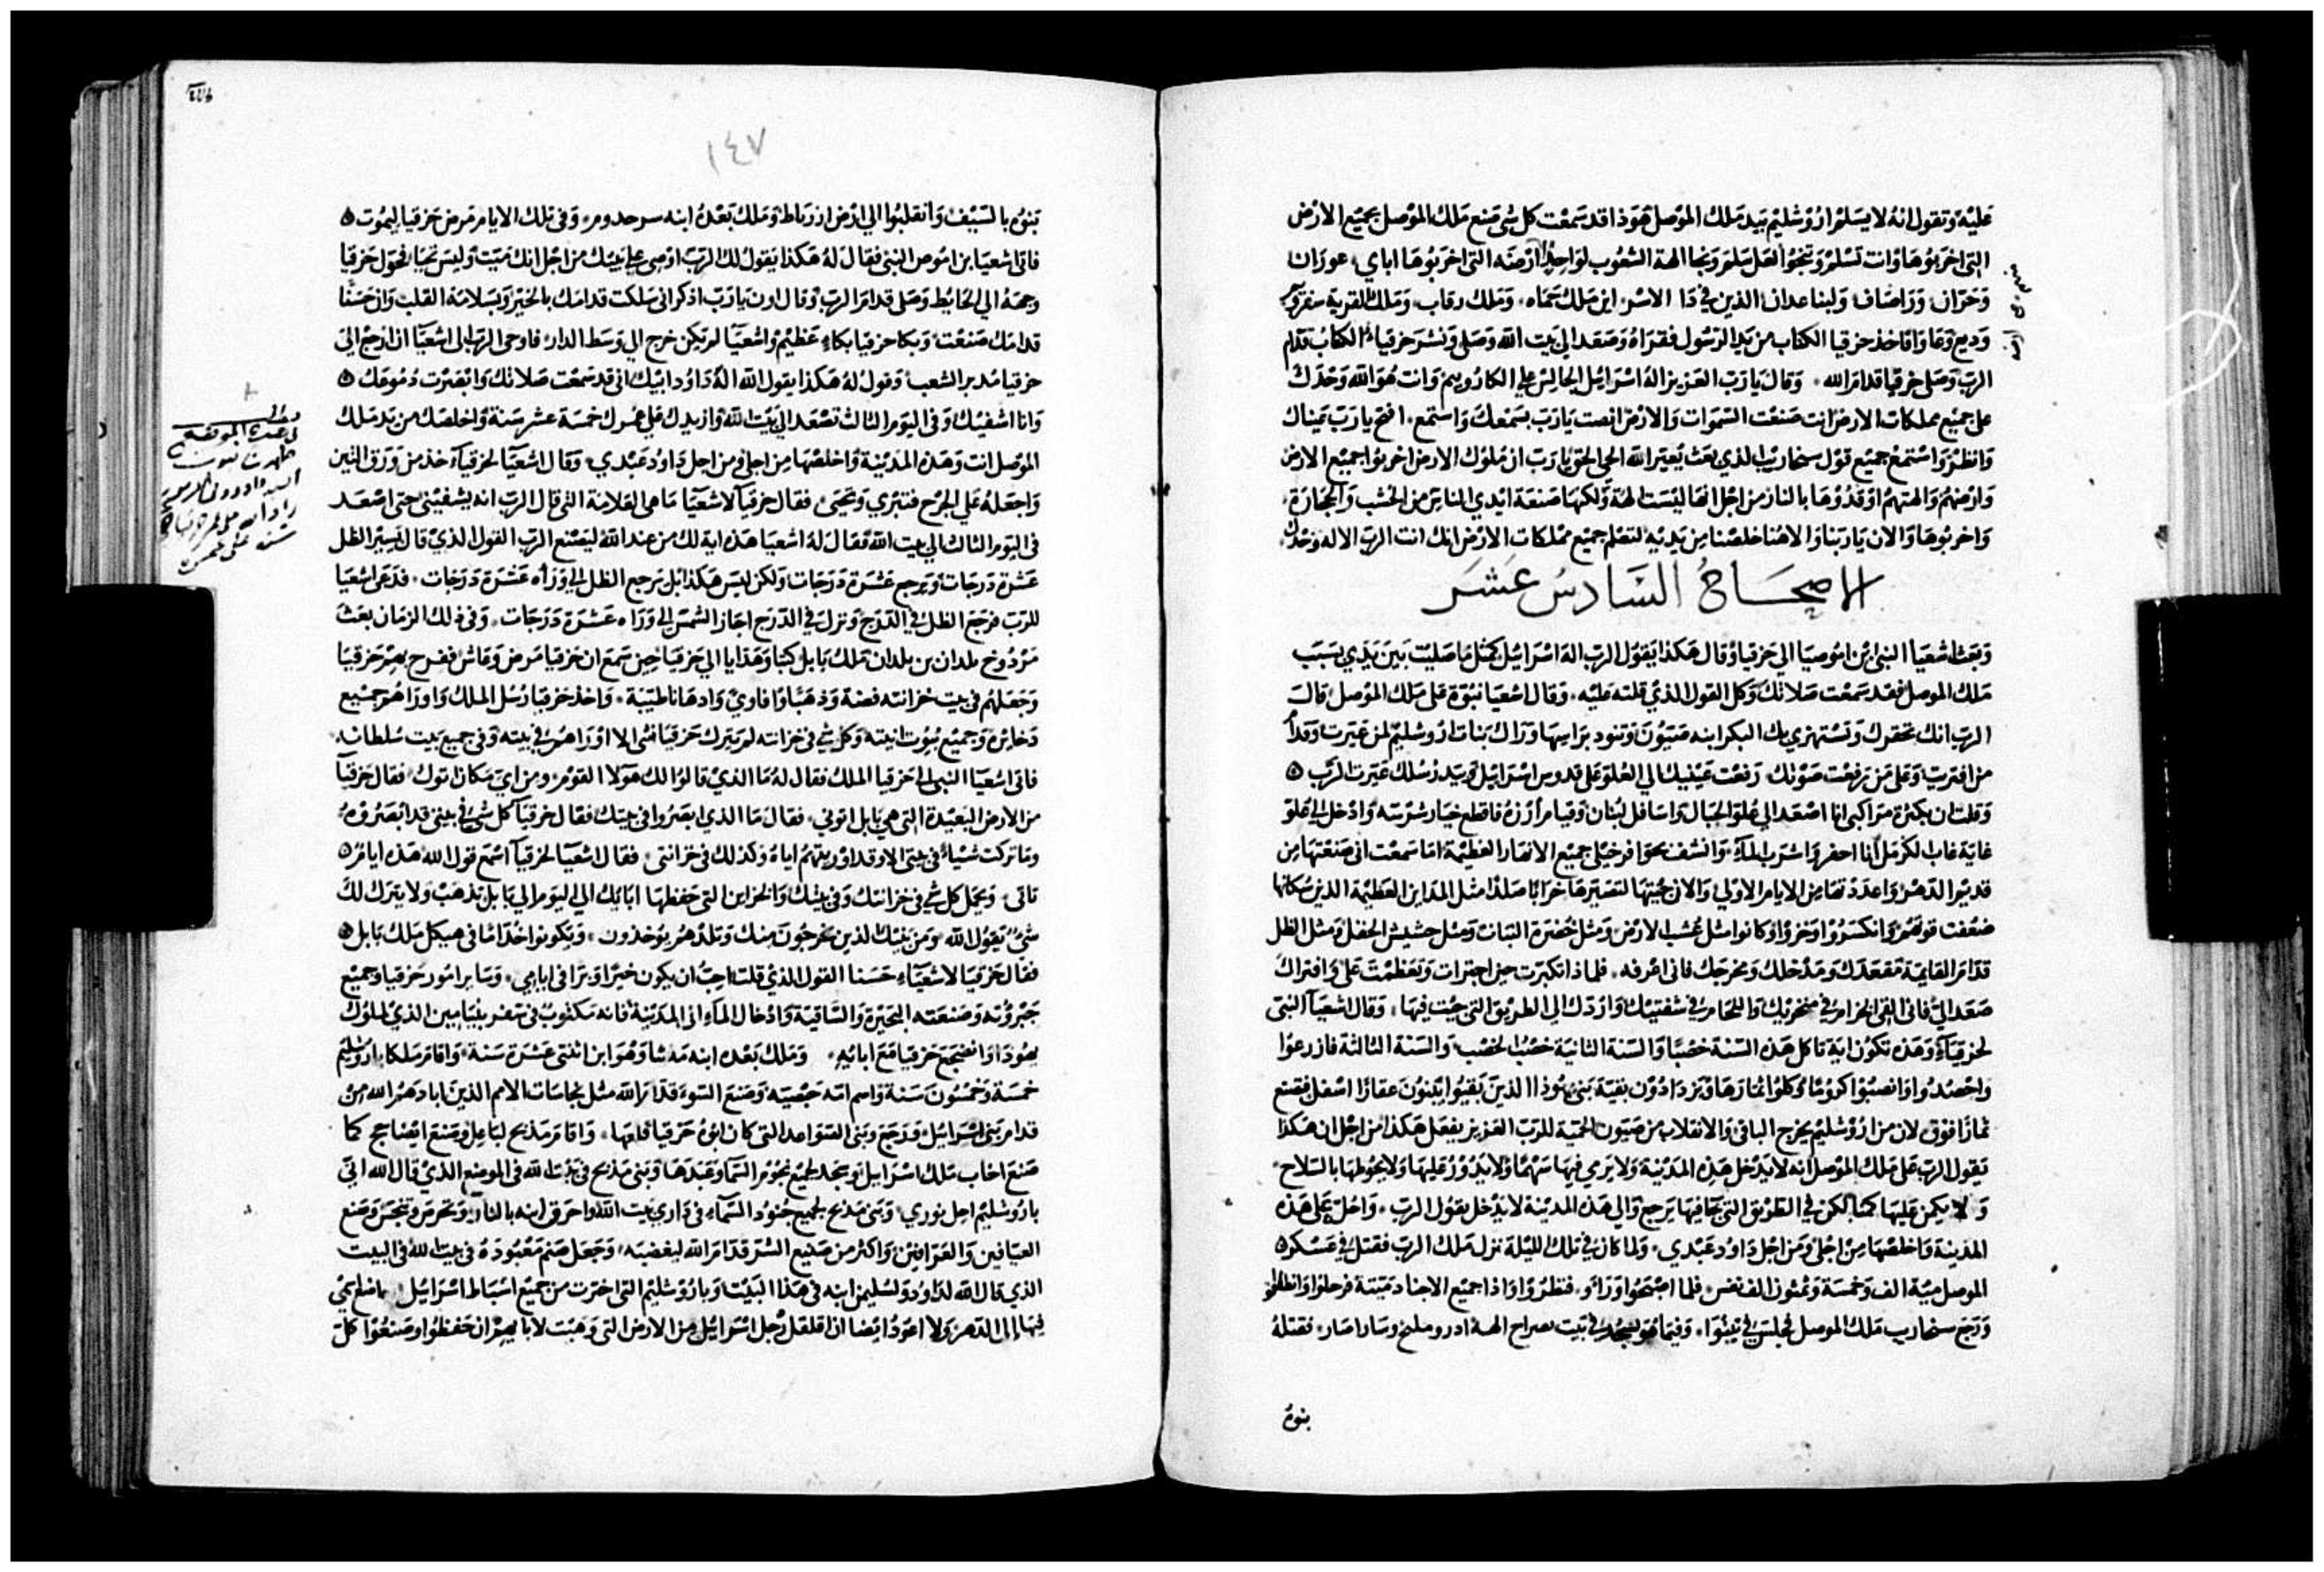 عليه وتقول انه لا يسلم اورشليم بيد ملك الموصل هوذا قد سمعت كل شي صنع ملك الموصل بجميع الارض
التي اخربوها وانت تسلم وتنجوا لعل سلم ونجا الهة الشعوب لواحد ارضه التي اخربوها اباي عوزان
وحران وراصاف ولبنا عدان الذين في دا الاسر اين ملك حماه وملك رقاب وملك القرية
فاخذ حزقيا الكتاب من يد الرسول فقراه وصعد الي بيت الله وصلي ونشر حزقيا الكتاب قدام
الرب وصلي حزقيا قدام الله وقال يا رب العزيز اله اسرايل الجالس علي الكاروبيم وانت هو الله وحدك
علي جميع مملكات الارض انت صنعت السموات والارض انصت يا رب بسمعك واستمع افتح يا رب عيناك
وانظر واستمع جميع قول سنحاريب الذي بعث يعير الله الحي الحق يا رب ان ملوك الارض اخربوا جميع الارض
وارضهم والهتهم اوقدوها بالنار من اجل انها ليست الهة ولكنها صنعة ايدي الناس من الخشب والحجارة
واخربوها والان يا ربنا والاهنا خلصنا من يديه لتعلم جميع مملكات الارض انك انت الرب الاله وحدك
الاصحاح السادس عشر
وبعث اشعيا النبي ابن اموصيا الي حزقيا وقال هكذا يقول الرب اله اسرايل كمثل ما صليت بين يدي بسبب
ملك الموصل فقد سمعت صلاتك وكل القول الذي قلته عليه وقال اشعيا نبوة على ملك الموصل قال
الرب انك تحقرك وتستهزي بك البكر ابنه صيون وتنود براسها وراك بنات اورشليم لمن عيرت وقدام
من افتريت وعلى من رفعت صوتك رفعت عينيك الي العلو على قدوس اسرايل وبيد رسلك عيرت الرب
وقلت ان بكثرة مراكبي انا اصعد الي علو الجبال واسافل لبنان وقيام ارزه فاقطع خيار شرسه وادخل الي علو
غاية غاب الكرمل انا احفر واشرب الماء وانشف بحوافر خيلي جميع الانهار العظيمة اما سمعت اني صنعتها من
قديم الدهر واعددتها من الايام الاولي والان جيتها لتصيرها خرابا صلدا مثل المداين العظيمة الذين سكانها
ضعفت قوتهم وانكسروا وخزوا وكانوا مثل عشب الارض ومثل خضرة النبات ومثل حشيش الحقل ومثل الظل
قدام القايمة مقعدك ومدخلك ومخرجك فاني اعرفه فلماذا تكبرت حين اجترات وتعظمت علي وافتراك
صعد الي فاني القي الخزام في منخريك واللجام في شفتيك واردك الي الطريق التي جيت فيها وقال اشعيا النبي
لحزقيا وهذه تكون اية تاكل هذه السنة خصبا والسنة الثانية خصب الخصب والسنة الثالثة فازرعوا
واحصدوا وانصبوا كروما وكلوا اثمارها ويزدادون بقية بني يهوذا الذين بقيوا يبنون عقارا اسفل فتصنع
ثمارا فوق لان من اورشليم يخرج الباقي والانفلات من صيون الحمية للرب العزيز يفعل هكذا من اجل ان هكذا
يقول الرب على ملك الموصل انه لا يدخل هذه المدينة ولا يرمي فيها سهما ولا يدور عليها ولا يحوطها بالسلاح
ولا يكمن عليها كمنا لكن في الطريق التي جا فيها يرجع والي هذه المدينة لا يدخل يقول الرب واحل على هذه
المدينة واخلصها من اجلي ومن اجل داود عبدي ولما كان في تلك الليلة نزل ملك الرب فقتل في عسكر
الموصل مية الف وخمسة وثمنون الف نفس فلما اصبحوا وراو فنظروا واذا جميع الاجناد ميتة فرحلوا وانطلقوا
ورجع سنحاريب ملك الموصل فجلس في نينوا وفيما هو يسجد في بيت الهه ادرومليخ وساراصار فقتله
بنوه
١٤٧
بنوه بالسيف وانقلبوا الي ارض ازرباط وملك بعده ابنه سرحدوم وفي تلك الايام مرض حزقيا ليموت
فاتي اشعيا بن اموص النبي فقال له هكذا يقول لك الرب اوصي علي بيتك من اجل انك ميت وليس تحيا فحول حزقيا
وجهه الي الحايط وصلي قدام الرب وقال اون يا رب اذكر اني سلكت قدامك بالخير وبسلامة القلب وان حسنا
قدامك صنعت وبكا حزقيا بكاء عظيم واشعيا لم يكن خرج الي وسط الدار فاوحي الرب الي اشعيا ان ارجع الي
حزقيا مدبر الشعب وقول له هكذا يقول الله اله داود ابيك اني قد سمعت صلاتك وابصرت دموعك
وانا اشفيك وفي اليوم الثالث تصعد الي بيت الله وازيدك علي عمرك خمسة عشر سنة واخلصك من يد ملك
الموصل انت وهذه المدينة واخلصها من اجلي ومن اجل داود عبدي وقال اشعيا لحزقيا خذ من ورق التين
واجعله على الجرح فتبري وتحيي فقال حزقيا لاشعيا ما هي العلامة التي قال الرب انه يشفيني حتى اصعد
في اليوم الثالث الي بيت الله فقال له اشعيا هذه اية لك من عند الله ليصنع الرب القول الذي قال يسير الظل
عشرة درجات ويرجع عشرة درجات ولكن ليس هكذا بل يرجع الظل الي وراه عشرة درجات فدعي اشعيا
للرب فرجع الظل في الدرج ونزل في الدرج اجاز الشمس الي وراه عشرة درجات وفي ذلك الزمان بعث
مردوخ بلدان بن بلدان ملك بابل كتبا وهدايا الي حزقيا حين سمع ان حزقيا مرض وعاش ففرح بهم حزقيا
وجعلهم في بيت خزانته فضة وذهبا وافاوي وادهانا طيبة واخذ حزقيا رسل الملك واوراهم جميع
دخايره وجميع بيوت انيته وكل شي في خزانته لم يترك حزقيا شي الا اوراهم في بيته وفي جميع بيت سلطانه
فاتي اشعيا النبي الي حزقيا الملك فقال له ما الذي قالوا لك هولا القوم ومن اي مكان اتوك فقال حزقيا
من الارض البعيدة التي هي بابل اتوني فقال ما الذي ابصروا في بيتك فقال حزقيا كل شي في بيتي قد ابصروه
وما تركت شياء في بيتي الا وقد اوريتهم اياه وكذلك في خزانتي فقال اشعيا لحزقيا اسمع قول الله هذه ايام
تاتي ويحمل كل شي في خزانتك وفي بيتك والخزاين التي حفظها ابايك الي اليوم الي بابل تذهب ولا يترك لك
شي يقول الله ومن بنيك الذين يخرجون منك وتلدهم يوخذون ويكونوا خداما في هيكل ملك بابل
فقال حزقيا لاشعياء حسنا القول الذي قلت احب ان يكون خيرا وبرا في ايامي وساير امور حزقيا وجميع
جبروته وصنعته البحيرة والساقية وادخال الماء الي المدينة فانه مكتوب في سفر بنيامين الذي لملوك
يهوذا وانضجع حزقيا مع ابايه وملك بعده ابنه منشا وهو ابن اثنتي عشرة سنة واقام ملكا باورشليم
خمسة وخمسون سنة واسم امه حبصيه وصنع السوء قدام الله مثل نجاسات الامم الذين ابادهم الله من
قدام بني اسرايل ورجع وبني السواعد التي كان ابوه حزقيا قلعها واقام مذبح لباعل وصنع ايضا كما
صنع اخاب ملك اسرايل وسجد لجميع نجوم السما وعبدها وبني مذبح في بيت الله في الموضع الذي قال الله اني
باورشليم احل نوري وبني مذبح لجميع جنود السماء في داري بيت الله واحرق ابنه بالنار وتحرم وتنجس وصنع
العيافين والعرافين واكثر من صنيع الشر قدام الله ليغضبه وجعل صنم معبوده في بيت الله في البيت
الذي قال الله لداود ولسليمن ابنه في هذا البيت وباورشليم التي اخترت من جميع اسباط اسرايل
فيها الي الدهر ولا اعود ايضا ان اقلقل رجل اسرايل من الارض التي وهبت لاباهم ان حفظوا وصنعوا كل